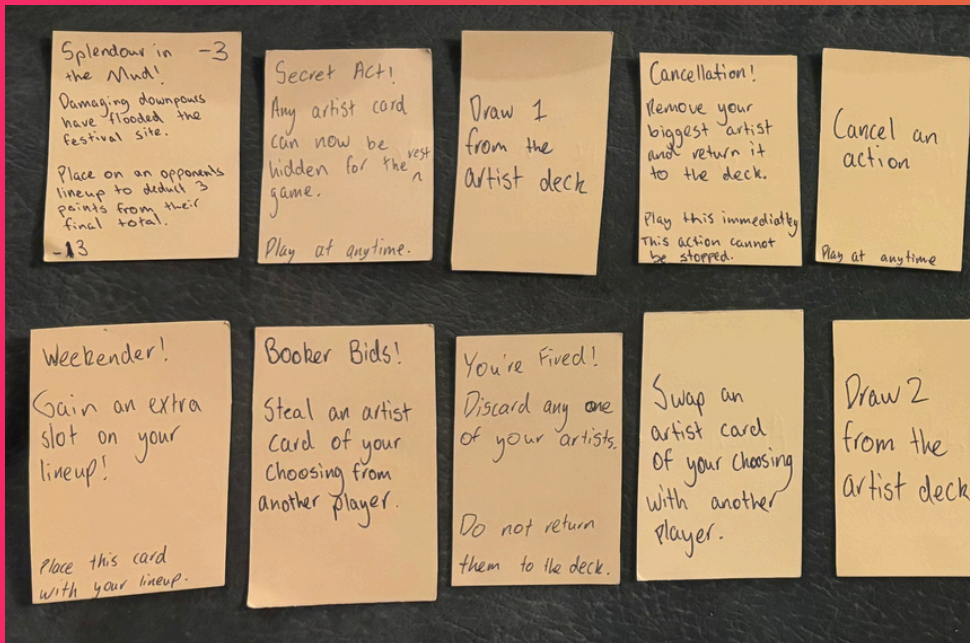 Splendour in -3
the Mud!
Damaging downpours
have flooded the
festival site.
Place on an opponents
lineup to deduct 3
points from their
final total.
-13
Secret Act!
Any artist card
can now be
hidden for the rest
game.
Play at anytime.
Draw 1
from the
artist deck
Cancellation!
Remove your
biggest artist
and return it
to the deck.
Play this immediatley
This action cannot
be stopped.
Cancel an
action
Play at anytime
Weekender!
Gain an extra
slot on your
lineup!
Place this card
with your lineup.
Booker Bids!
Steal an artist
card of your
choosing from
another player.
You're Fired!
Discard any one
of your artists.
Do not return
them to the deck.
Swap an
artist card
of your choosing
with another
player.
Draw 2
from the
artist deck